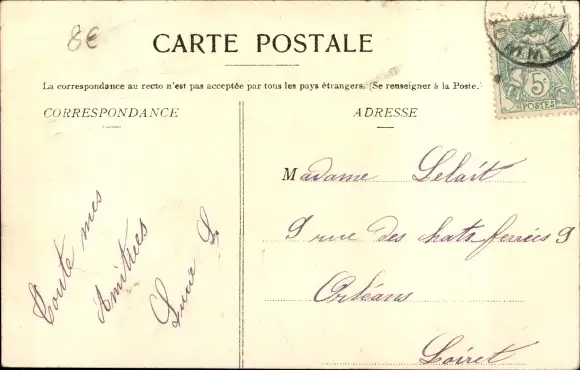 8€
CARTE POSTALE
La correspondance au recto n'est pas acceptée par tous les pays étrangers. (Se renseigner à la Poste.)
CORRESPONDANCE
ADRESSE
5c
POSTES
OMME
Toute mes
Amitiées
Madame Lelait
9 rue des chats ferrées 9
Orléans
Loiret